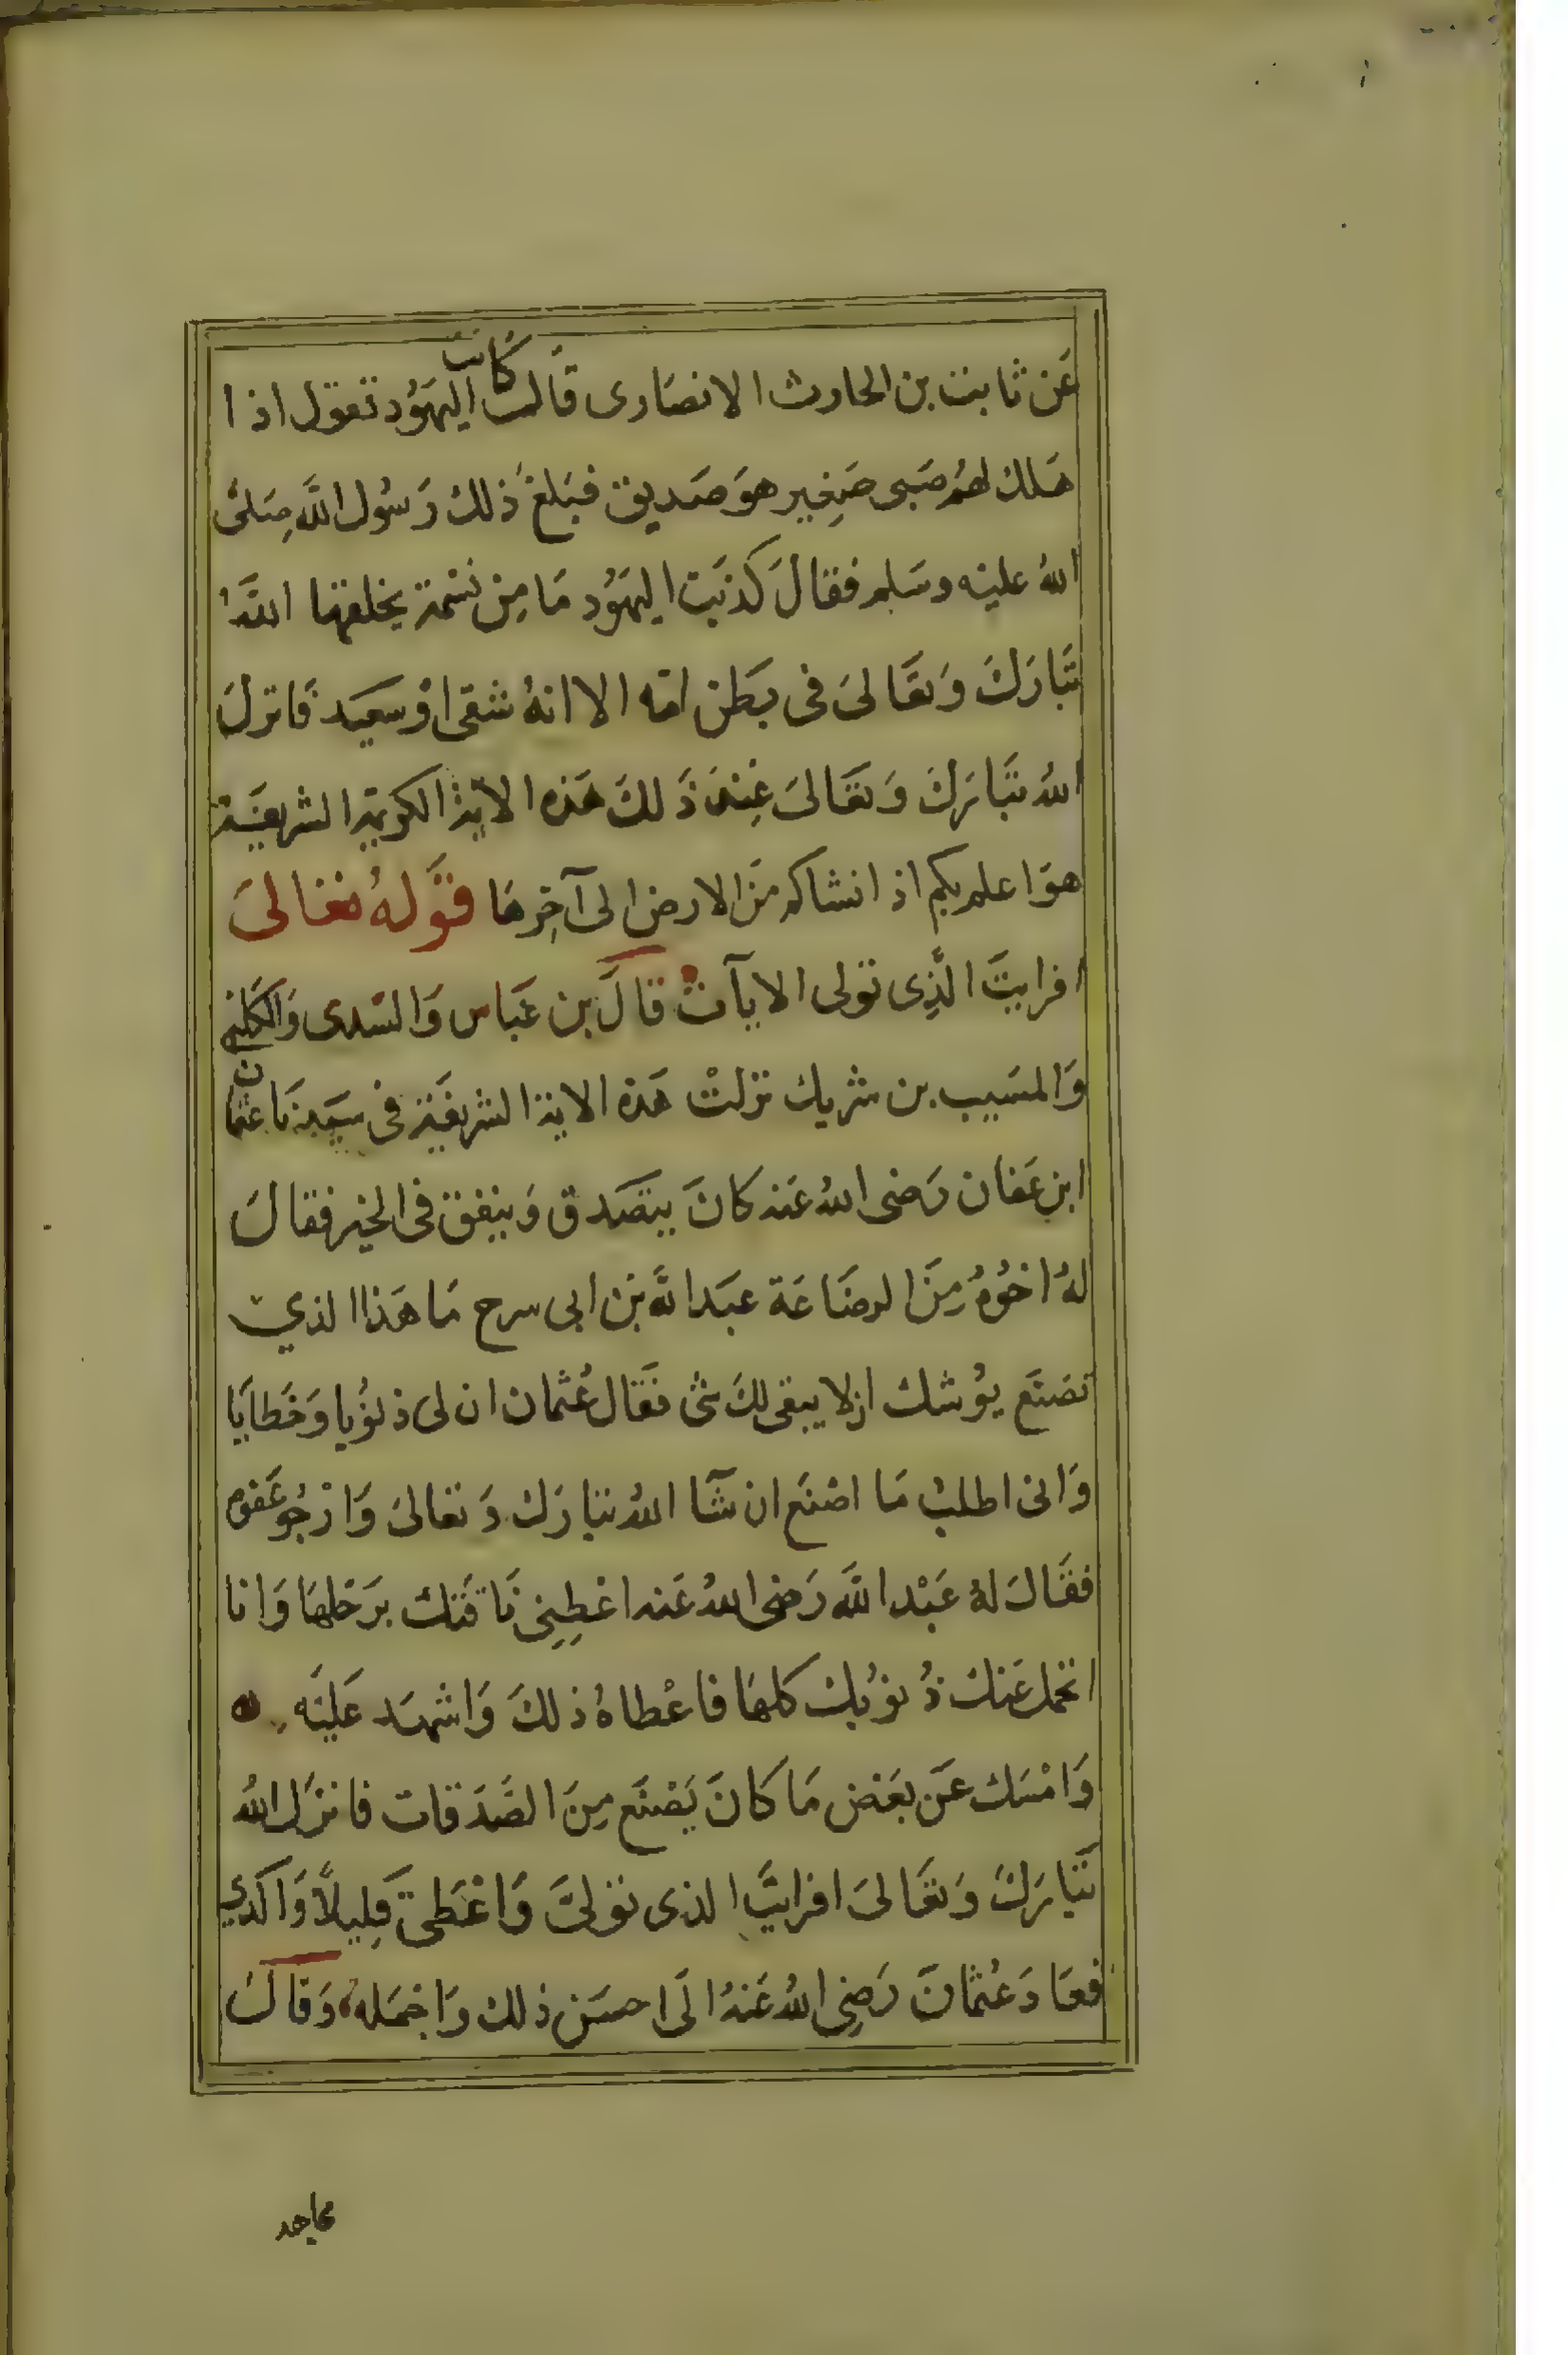 عَن ثابت بن الحارث الانصَارى قَالت كانت اليهَوُد تقول اذا
هَلك لهُم صَبى صَغِير هوَ صَديق فبَلغ ذلك رَسُول اللَّه صَلىَّ
اللهُ عليْه وسَلم فقالَ كذبَت اليهَوُد مَا مِن نسْمة يخلقها اللَّهُ
تَبَارَكَ وَتعَالىَ فى بَطن امّه الا انهُ شقى اوْ سعَيد فَانزلَ
اللهُ تبَاركَ وَتعَالىَ عِندَ ذَلكَ هَذه الايَة الكريمَة الشريفَة
هوَ اعلم بكم اذ انشاكم مَنَ الارض الى آخِرهَا قوَّلهُ تعَالىَ
افرايتَ الَّذِى تولى الايآت قالَ بن عَبَاس وَالسّدى وَالكَلبى
وَالمسَيب بن شريك نزلتْ هَذه الاية الشريفَة فى سَيدنا عثمان
ابن عَفان رَضى اللهُ عَنه كانَ يتصَدق وَينفق فى الخير فقالَ
لهُ اخوُهُ مِنَ الرضَاعَة عبَد اللَّه بَن ابى سرح مَا هَذا الذي
تصَنَع يوُشك ان لا يبقى لكَ شئ فقَال عُثمان ان لى ذنوُبا وَخَطايَا
وَانى اطلبْ مَا اصْنَع ان شَآ اللهُ تبَارَك وَتعَالىَ وَارْجُو عَفوه
فقَالَ لهُ عَبْد اللَّه رَضى اللهُ عَنه اعْطِنِى نَاقتَك برَحْلهَا وَانا
اتحمل عَنك ذُنوبُك كلهَا فاعْطاهُ ذلكَ وَاشهَد عَليَه
وَامْسَك عَن بعَض مَا كانَ يَصْنَع مِنَ الصَّدَقات فانزَل اللهُ
تَبَارَكَ وَتعَالىَ افرايتَ الذى توَلىَّ وَاعْطىَ قَلِيلاً وَاكَدي
فعَاد عُثمَانَ رَضِى اللهُ عَنهُ الَى احسَن ذلك وَاجْمَله وَقالَ
مجاهد